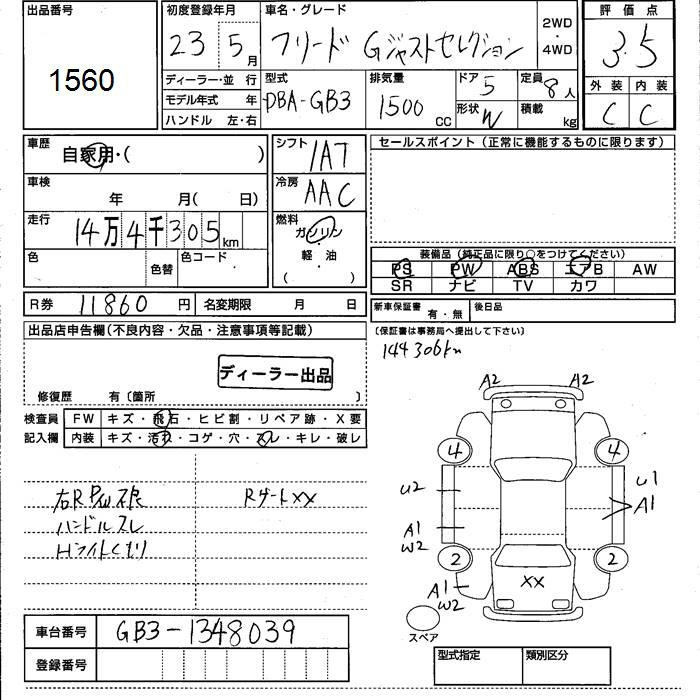 出品番号
1560
初度登録年月
23 5月
車名・グレード
フリード Gジャストセレクション
2WD
・
4WD
評価点
3.5
ディーラー・並 行
モデル年式 年
ハンドル 左・右
型式
DBA-GB3
排気量
1500 CC
ドア 5
形状 W
定員 8人
積載 kg
外装 内装
C C
車歴
自家用・( )
シフト
IAT
セールスポイント(正常に機能するものに限ります)
車検
年 月( 日)
冷房
AAC
走行
14万4千305km
燃料
ガソリン
・
軽・油
( )
色
色替
色コード
装備品(純正品に限り○をつけてください)
PS PW ABS エアB AW
SR ナビ TV カワ
R券 11860 円 名変期限 月 日
新車保証書 有・無
後日品
(保証書は事務局へ提出して下さい)
144306km
出品店申告欄(不良内容・欠品・注意事項等記載)
ディーラー出品
修復歴 有〔箇所 〕
検査員
記入欄
FW キズ・飛石・ヒビ割・リペア跡・X要
内装 キズ・汚れ・コゲ・穴・スレ・キレ・破レ
右R P/W不良
ハンドルスレ
Hライトくもり
Rゲートxx
A2 A2
4 4
U2 U1
A1
A1
W2
2 2
A1
W2
XX
スペア
車台番号 GB3-1348039
登録番号
型式指定 類別区分